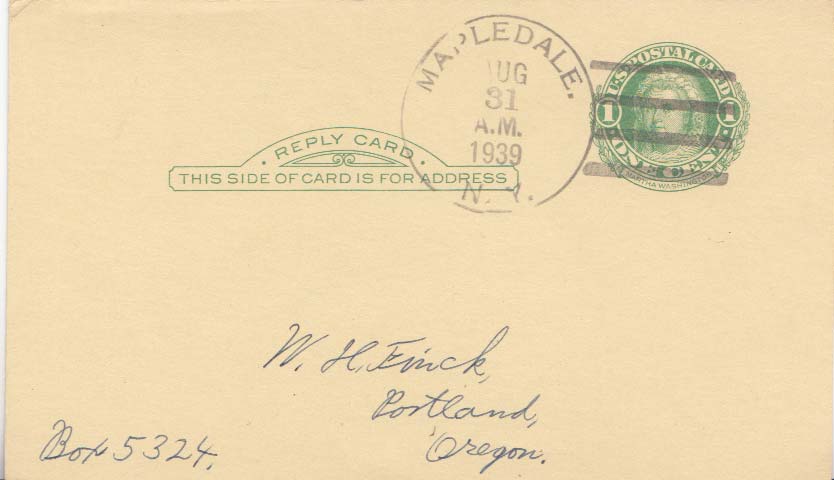 MAPLEDALE.
AUG
31
A.M.
1939
N.Y.
U.S. POSTAL CARD
1 1
ONE CENT
MARTHA WASHINGTON
REPLY CARD
THIS SIDE OF CARD IS FOR ADDRESS
W. H. Finck,
Portland,
Oregon.
Box 5324.